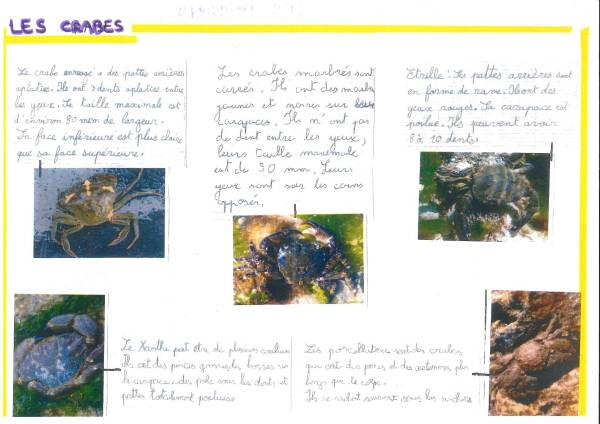 LES CRABES
Le crabe enragé a des pattes arrières
aplaties. Ils ont 3 dents aplaties entre
les yeux. Sa taille maximale est
d'environ 80 mm de largeur.
La face inférieure est plus claire
que sa face supérieure.
Les crabes marbrés sont
carrés. Ils ont des marbres
jaunes et noires sur leur
carapaces. Ils n'ont pas
de dent entre les yeux,
leurs taille maximale
est de 50 mm. Leurs
yeux sont sur les coins
opposés.
Etrille : Les pattes arrières sont
en forme de rame. Ils ont des
yeux rouges. La carapace est
poilue. Ils peuvent avoir
8 à 10 dents.
Le Xanthe peut etre de plusieurs couleurs
Ils ont des pinces grosses, les bosses sur
la carapace, des poils sous les dents et
pattes totalement poilues.
Les porcellanes sont des crabes
qui ont des pinces et des antennes plus
longs que le corps.
Ils se cachent souvent sous les rochers